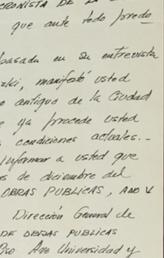 CRONISTA DE LA
que ante todo
basada en su entrevista
manifestó usted
antiguo de la Ciudad
ya procede usted
condiciones actuales.
informar a usted que
os de diciembre del
OBRAS PUBLICAS,
Dirección General de
DE OBRAS PUBLICAS
Ave Universidad y